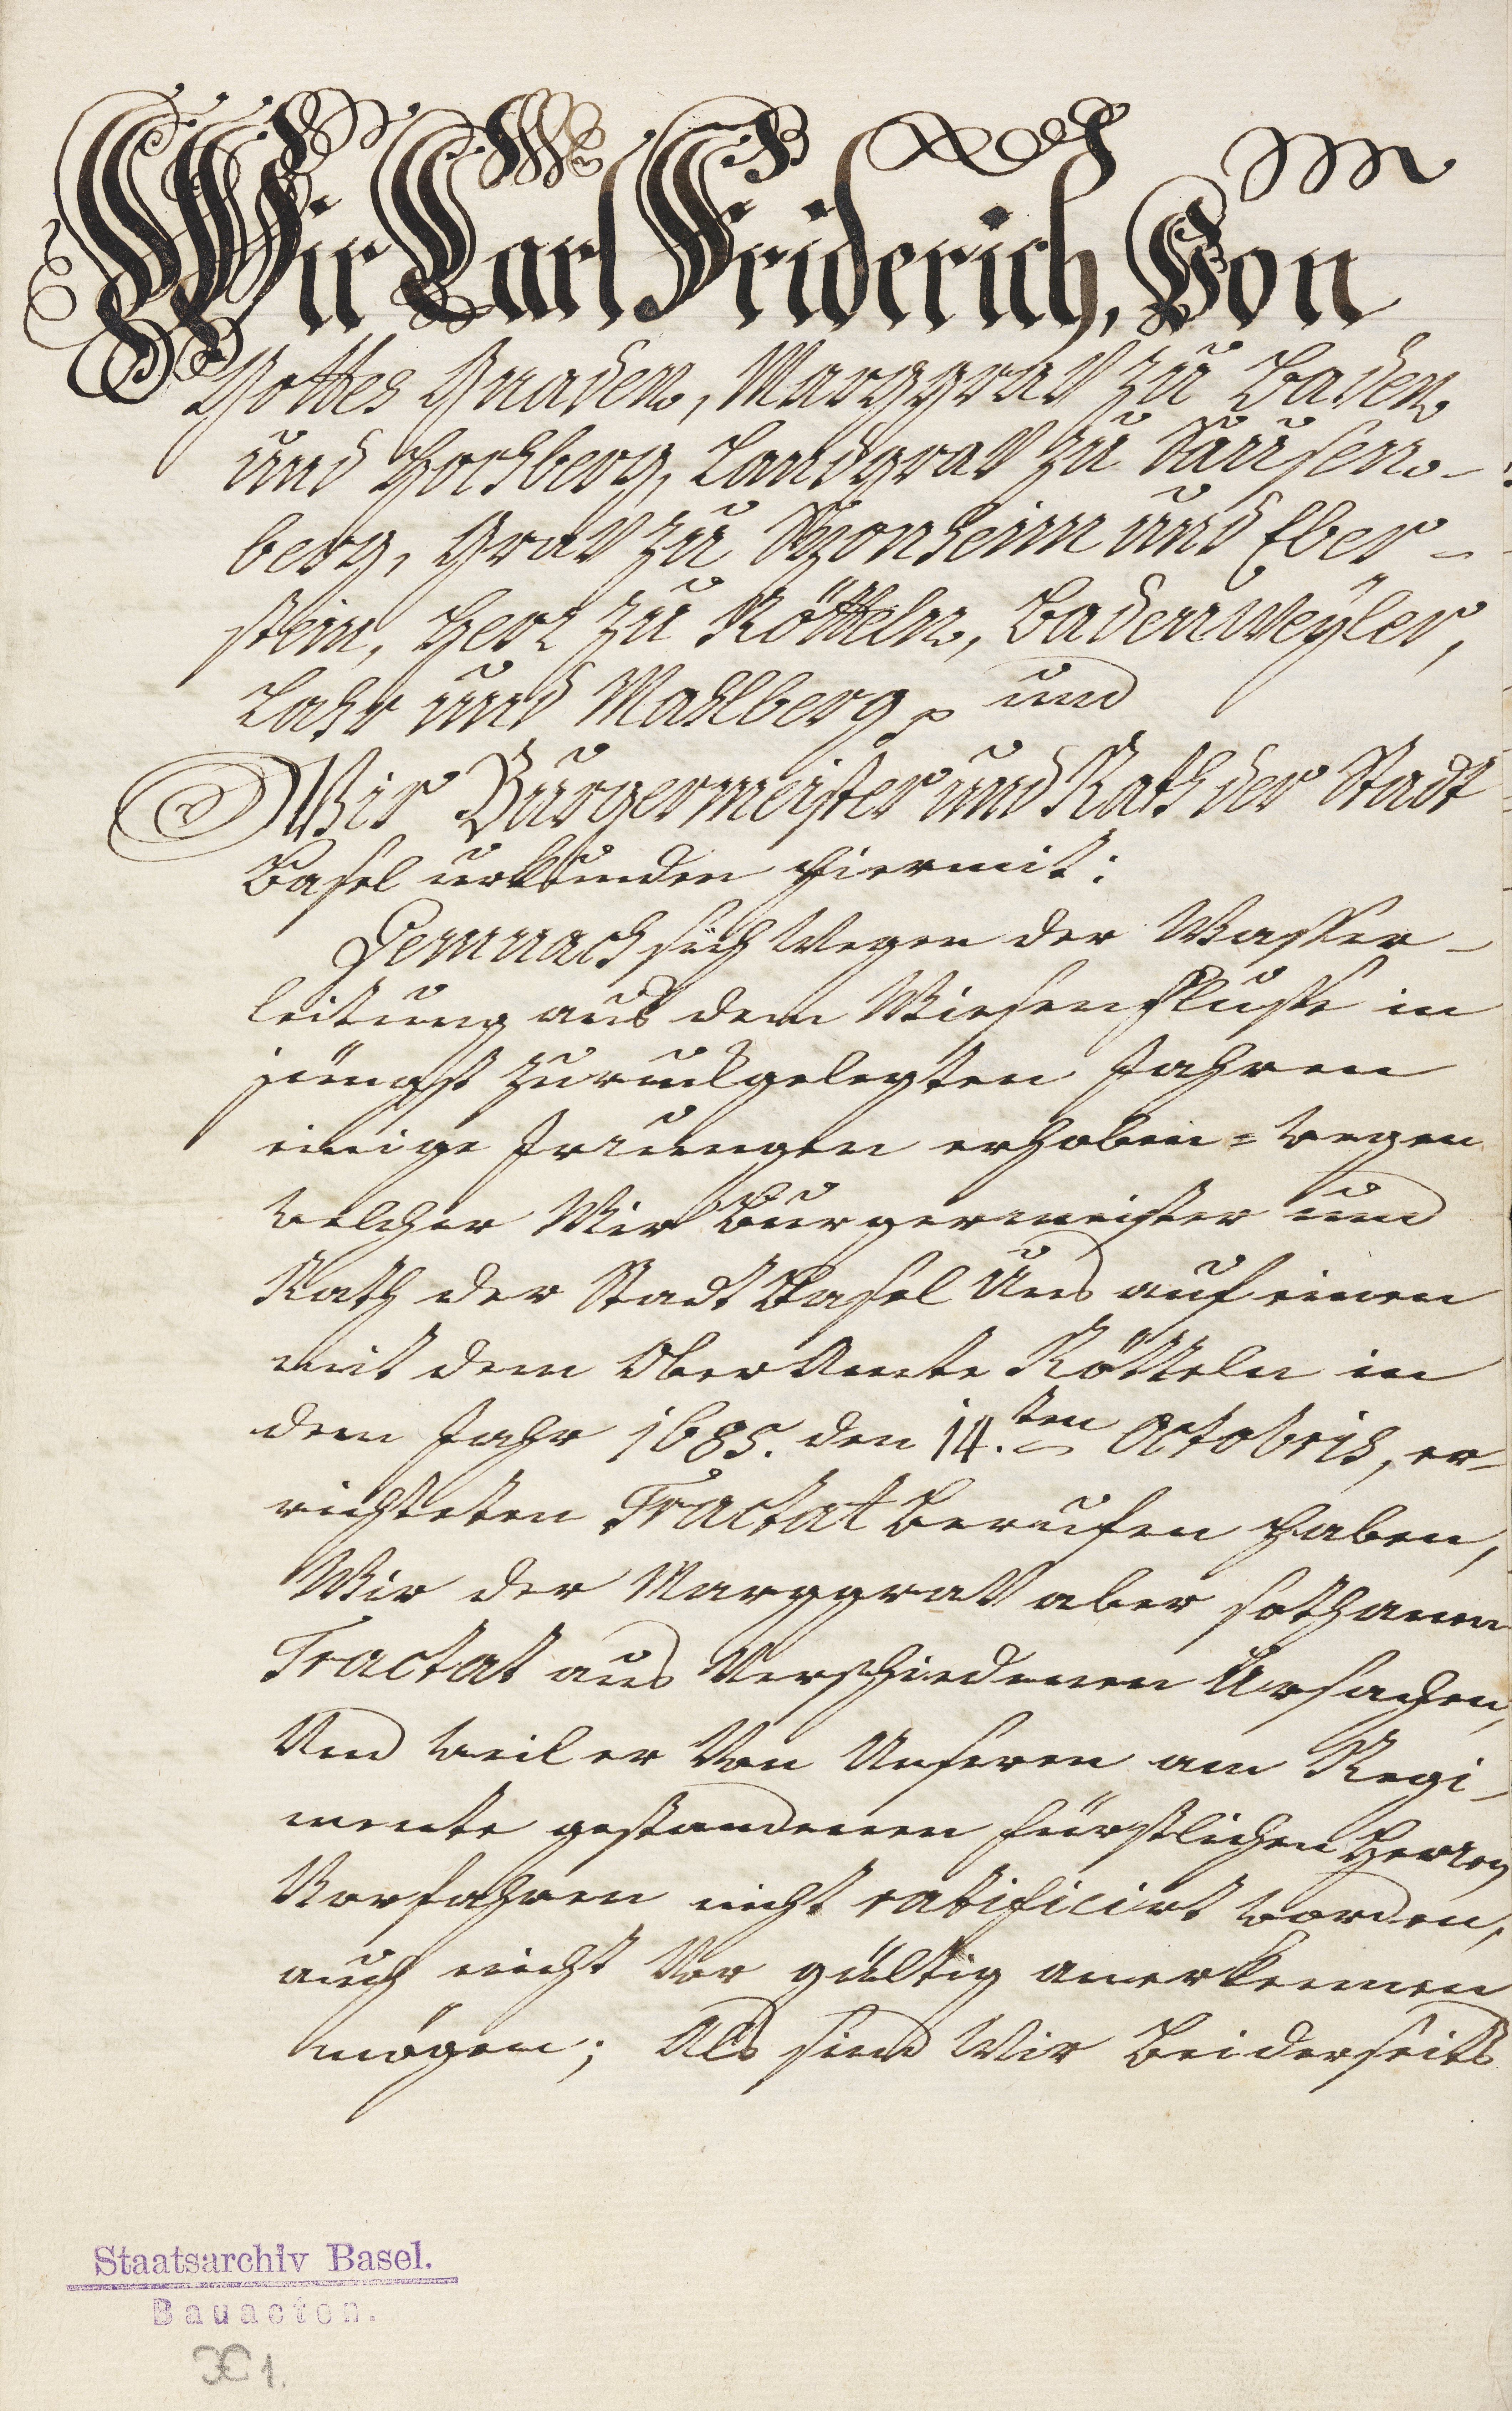 Wir Carl Friderich, Von
Gottes Gnaden, Marggrav zu Baden
und Hochberg, Landgrav zu Sausen-
berg, Grav zu Sponheim und Eber-
stein, Herr zu Rötteln, Badenweyler,
Lahr und Mahlberg p. und
Wir Burgermeister und Rath der Stadt
Basel urkunden hiermit:
Demnach sich wegen der Wasser-
leitung aus dem Wiesenflusse in
jüngst zuruckgelegten Jahren
einige Irrungen erhoben = wegen
welcher Wir Burgermeister und
Rath der Stadt Basel Uns auf einen
mit dem OberAmte Rötteln in
dem Jahr 1685. den 14.ten Octobris, er-
richteten Tractat beruffen haben,
Wir der Marggrav aber sothanen
Tractat aus verschiedenen Ursachen,
Und weil er von Unseren am Regi-
mente gestandenen fürstlichen Herren
Vorfahren nicht ratificirt worden,
auch nicht vor gültig anerkennen
mögen; Als sind Wir beiderseits
Staatsarchiv Basel.
Bauacten.
1.